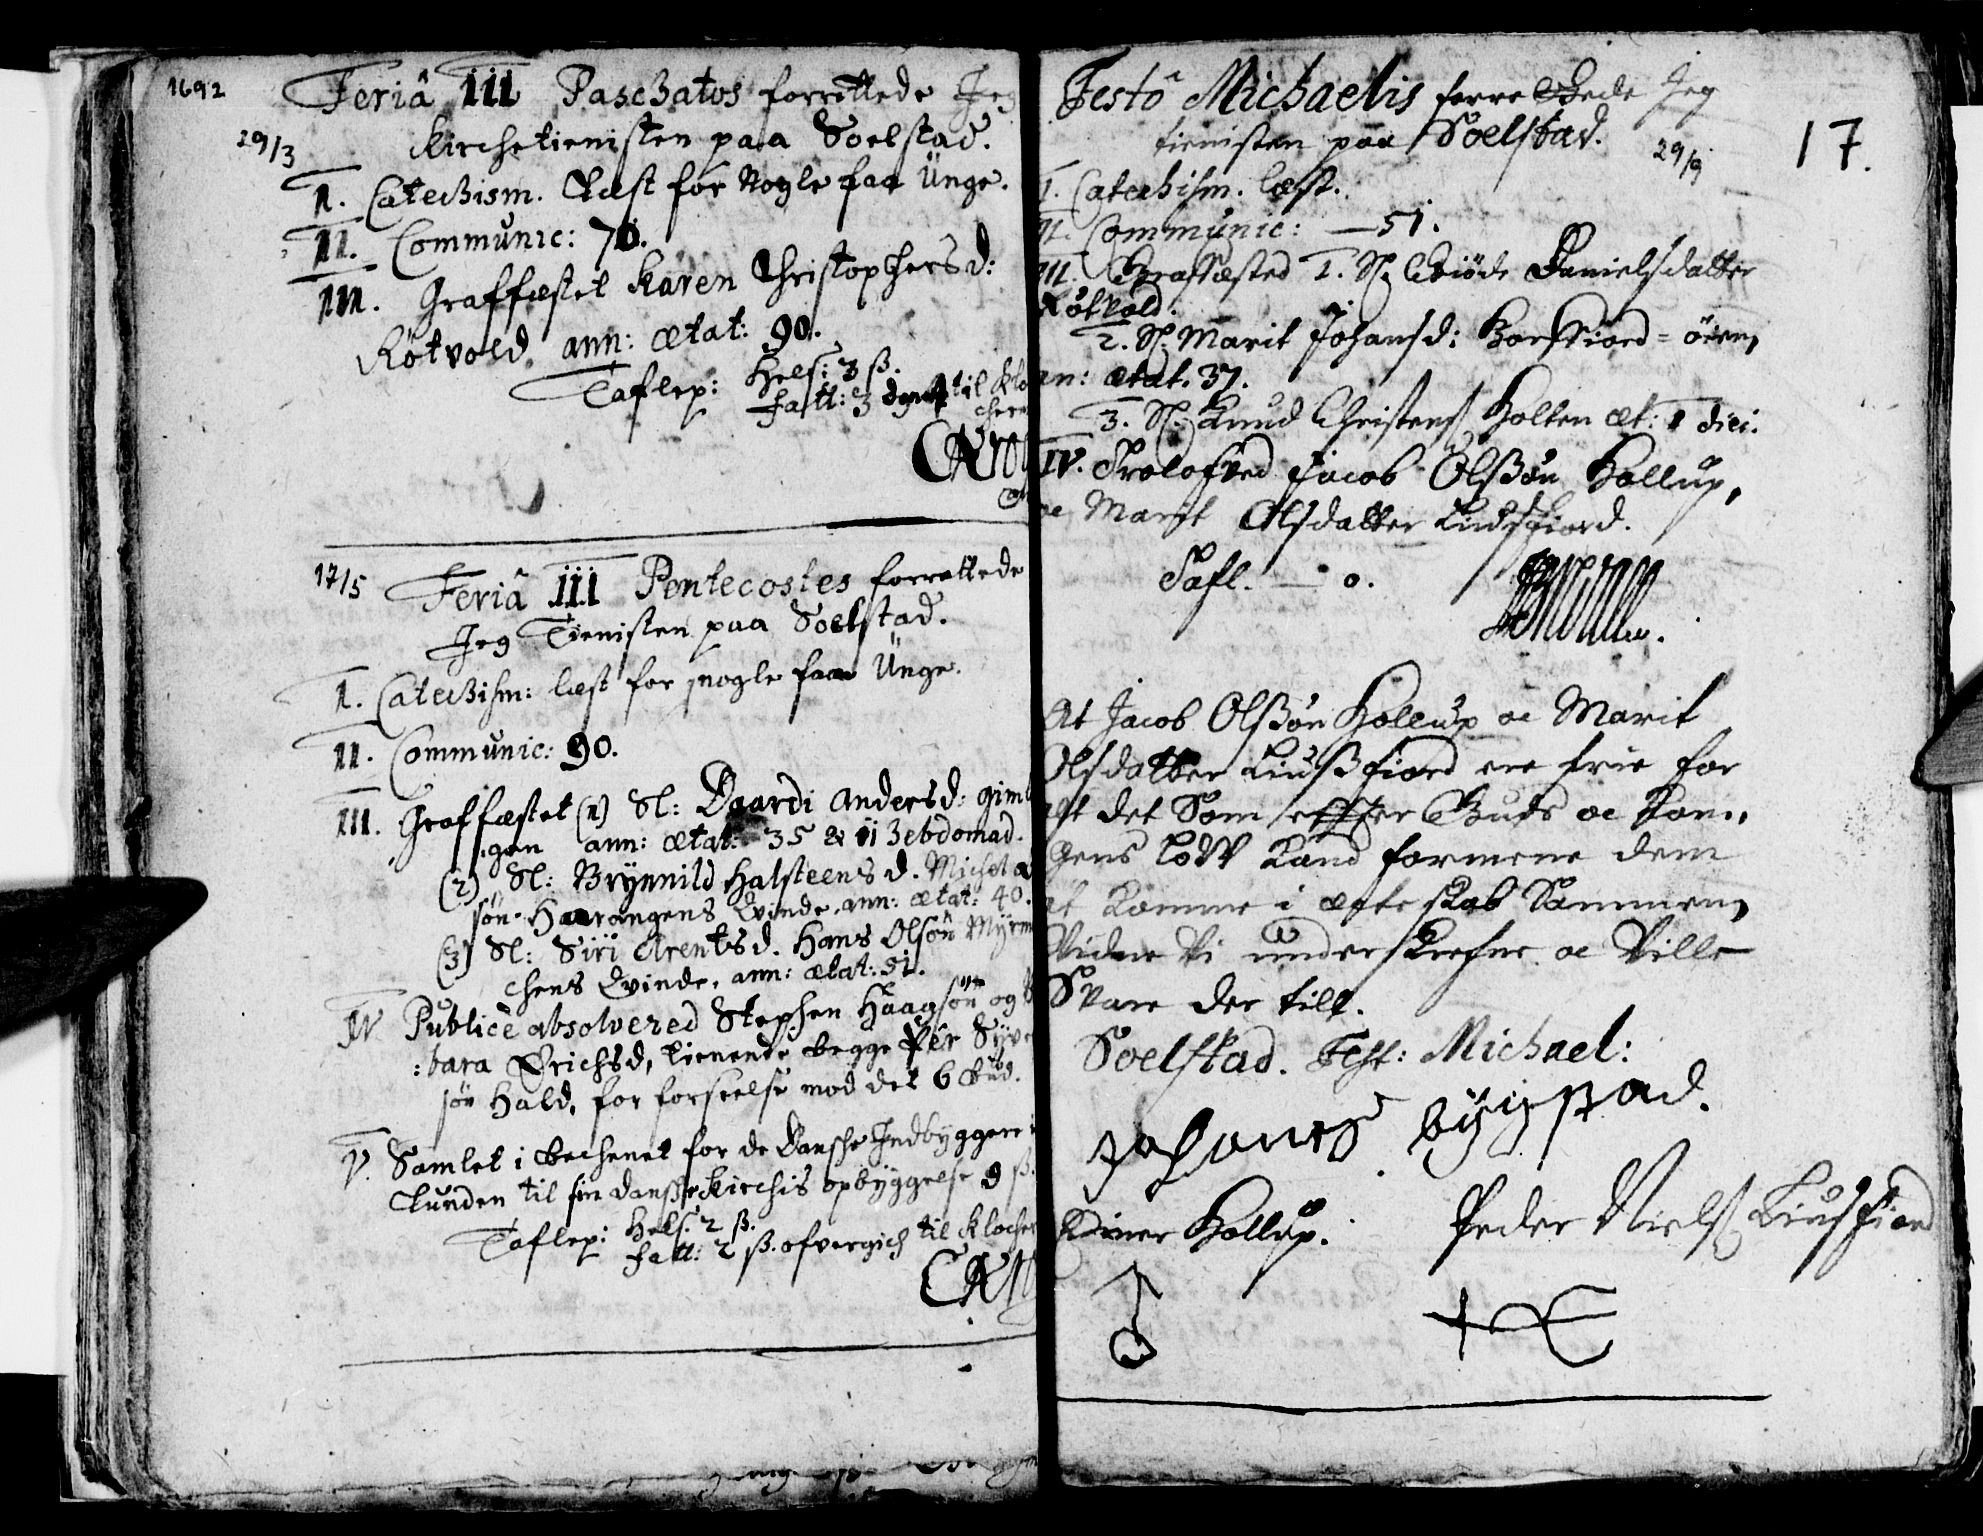 1692
Feriâ III Paschatos forrettede Jeg
29/3
Kirchetienisten paa Soelstad.
I. Catechism. Læst for Nogle faa Unge.
II. Communic: 70.
III. Graffæstet Karen Christophersd:
Rötvold ann: ætat: 90.
Taflep: Hels: 3 ß.
fatt: 3 til Klo
cher
17/5
Feriâ III Pentecostes forrettede
Jeg Tienisten paa Soelstad.
I. Catechism: læst for nogle faa Unge.
II. Communic: 90.
III. Graffæstet (1) Sl: Baardi Andersd: giml
gen ann: ætat: 35 & 11 hebdomad.
(2) Sl: Brynnild Halsteens d. Michel a
søn Haarangens Qvinde, ann: ætat: 40.
(3) Sl: Siri Arentsd. Hans Olsøn Myrm
chens Qvinde, ann: ætat: 51.
IV. Publicè absolvered Stephen Haagsøn og B
:bara Erichsd, tienende begge Per Syve
søn Hald, for forseelse mod det 6 bud.
V. Samlet i bechenet for de Danske Indbyggere i
Lunden til sin danske Kirchis opbyggelse 9 ß.
Taflep: Hels: 2 ß.
fatt: 2 ß. ofvergich til Klocher
Festô Michaelis forrettede Jeg
tienisten paa Soelstad.
29/9
17.
I. Catechism. læst.
II. Communic: — 51.
III. Grafæsted 1. Sl. Danielsdatter
Røtvold.
2. Sl. Marit Johansd: Horsfiord-øien,
an: ætat. 37.
3. Sl. Knud Christens Holten æt: 1 diei.
IV. Trolofved Jacob Olßøn Hollup,
oc Marit Olsdatter Liusfiord.
Tafl. — 0.
At Jacob Olßøn Hollup oc Marit
Olsdatter Liußfiord ere frie for
alt det Som effter Guds oc Kon,
gens lov Kand formene dem
at Komme i ægteskab Sammen,
Vidne Vi underskrefne oc Ville
Svare der till.
Soelstad. Fest: Michael:
Johanes bygstad.
Einer Hollup.
Peder Niels Liusfiord